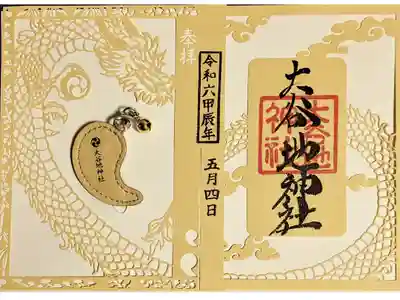 奉拝
令和六甲辰年
五月四日
大谷地神社
大谷地
神社
大谷地神社